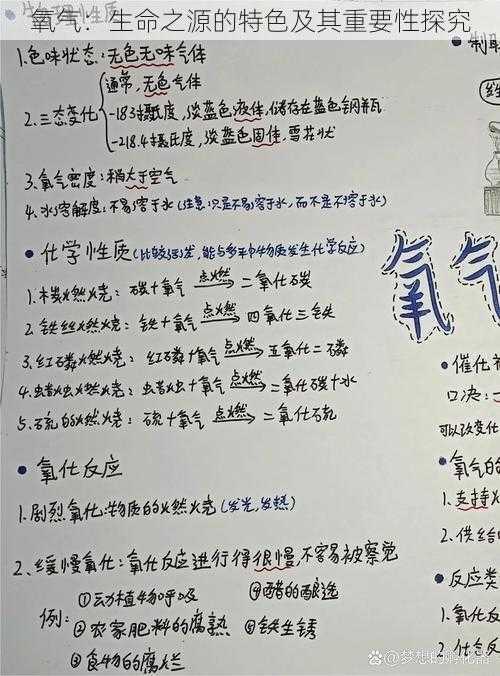 氧气：生命之源的特色及其重要性探究
物理性质
1.色味状态：无色无味气体
2.三态变化
通常，无色气体
-183摄氏度，淡蓝色液体，储存在蓝色钢瓶
-218.4摄氏度，淡蓝色固体，雪花状
3.氧气密度：稍大于空气
4.水溶解度：不易溶于水（注意：只是不易溶于水，而不是不溶于水）
• 化学性质（比较活泼，能与多种物质发生化学反应）
1.木炭燃烧：碳+氧气 点燃→ 二氧化碳
2.铁丝燃烧：铁+氧气 点燃→ 四氧化三铁
3.红磷燃烧：红磷+氧气 点燃→ 五氧化二磷
4.蜡烛燃烧：蜡烛+氧气 点燃→ 二氧化碳+水
5.硫的燃烧：硫+氧气 点燃→ 二氧化硫
• 氧化反应
1.剧烈氧化：物质的燃烧（发光，发热）
2.缓慢氧化：氧化反应进行得很慢，不容易被察觉
例：
①动植物呼吸 ④醋的酿造
②农家肥料的腐熟 ⑤铁生锈
③食物的腐烂
• 制取
氧气
• 催化
口决：
可以改变化
• 氧气的
1.支持
2.供给
• 反应类
1.氧化反
2.化合反
@梦想的孵化器